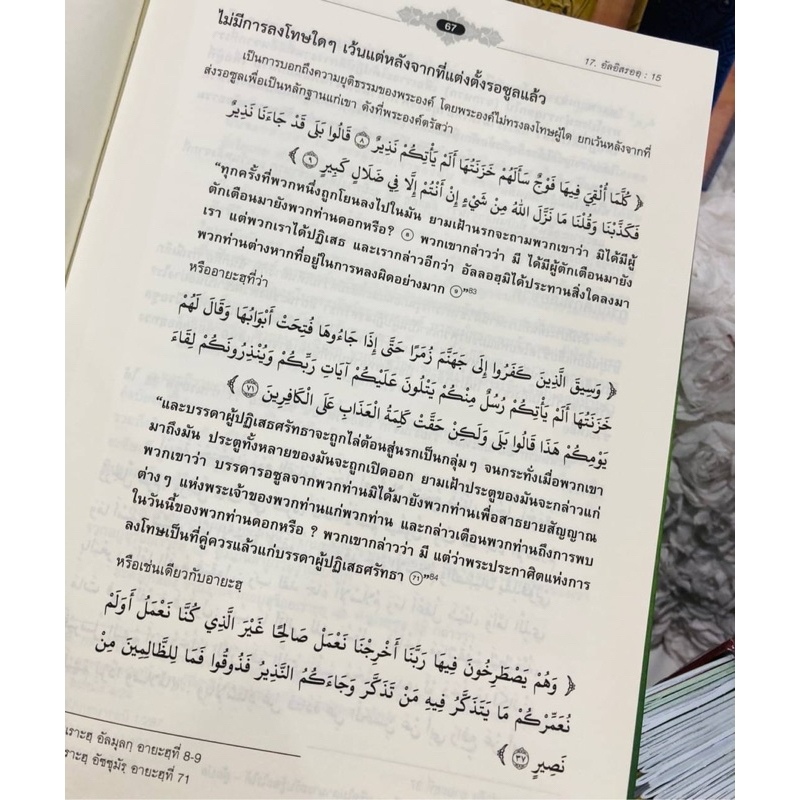 67
17. อัลอิสรออฺ : 15
ไม่มีการลงโทษใดๆ เว้นแต่หลังจากที่แต่งตั้งรอซูลแล้ว
เป็นการบอกถึงความยุติธรรมของพระองค์ โดยพระองค์ไม่ทรงลงโทษผู้ใด ยกเว้นหลังจากที่
ส่งรอซูลเพื่อเป็นหลักฐานแก่เขา ดังที่พระองค์ตรัสว่า
﴿ كُلَّمَا أُلْقِيَ فِيهَا فَوْجٌ سَأَلَهُمْ خَزَنَتُهَا أَلَمْ يَأْتِكُمْ نَذِيرٌ ۝٨ قَالُوا بَلَى قَدْ جَاءَنَا نَذِيرٌ
فَكَذَّبْنَا وَقُلْنَا مَا نَزَّلَ اللهُ مِنْ شَيْءٍ إِنْ أَنْتُمْ إِلَّا فِي ضَلَالٍ كَبِيرٍ ۝٩ ﴾
“ทุกครั้งที่พวกหนึ่งถูกโยนลงไปในมัน ยามเฝ้านรกจะถามพวกเขาว่า มิได้มีผู้
ตักเตือนมายังพวกท่านดอกหรือ? ๘ พวกเขากล่าวว่า มี ได้มีผู้ตักเตือนมายัง
เรา แต่พวกเราได้ปฏิเสธ และเรากล่าวอีกว่า อัลลอฮฺมิได้ประทานสิ่งใดลงมา
พวกท่านต่างหากที่อยู่ในการหลงผิดอย่างมาก ๙”83
หรืออายะฮฺที่ว่า
﴿ وَسِيقَ الَّذِينَ كَفَرُوا إِلَى جَهَنَّمَ زُمَرًا حَتَّى إِذَا جَاءُوهَا فُتِحَتْ أَبْوَابُهَا وَقَالَ لَهُمْ
خَزَنَتُهَا أَلَمْ يَأْتِكُمْ رُسُلٌ مِنْكُمْ يَتْلُونَ عَلَيْكُمْ آيَاتِ رَبِّكُمْ وَيُنْذِرُونَكُمْ لِقَاءَ
يَوْمِكُمْ هَذَا قَالُوا بَلَى وَلَكِنْ حَقَّتْ كَلِمَةُ الْعَذَابِ عَلَى الْكَافِرِينَ ۝٧١ ﴾
“และบรรดาผู้ปฏิเสธศรัทธาจะถูกไล่ต้อนสู่นรกเป็นกลุ่มๆ จนกระทั่งเมื่อพวกเขา
มาถึงมัน ประตูทั้งหลายของมันจะถูกเปิดออก ยามเฝ้าประตูของมันจะกล่าวแก่
พวกเขาว่า บรรดารอซูลจากพวกท่านมิได้มายังพวกท่านเพื่อสาธยายสัญญาณ
ต่างๆ แห่งพระเจ้าของพวกท่านแก่พวกท่าน และกล่าวเตือนพวกท่านถึงการพบ
ในวันนี้ของพวกท่านดอกหรือ ? พวกเขากล่าวว่า มี แต่ว่าพระประกาศิตแห่งการ
ลงโทษเป็นที่คู่ควรแล้วแก่บรรดาผู้ปฏิเสธศรัทธา 71”84
หรือเช่นเดียวกับอายะฮฺ
﴿ وَهُمْ يَصْطَرِخُونَ فِيهَا رَبَّنَا أَخْرِجْنَا نَعْمَلْ صَالِحًا غَيْرَ الَّذِي كُنَّا نَعْمَلُ أَوَلَمْ
نُعَمِّرْكُمْ مَا يَتَذَكَّرُ فِيهِ مَنْ تَذَكَّرَ وَجَاءَكُمُ النَّذِيرُ فَذُوقُوا فَمَا لِلظَّالِمِينَ مِنْ
نَصِيرٍ ۝٣٧ ﴾
เราะฮฺ อัลมุลกฺ อายะฮฺที่ 8-9
ราะฮฺ อัซซุมัรฺ อายะฮฺที่ 71